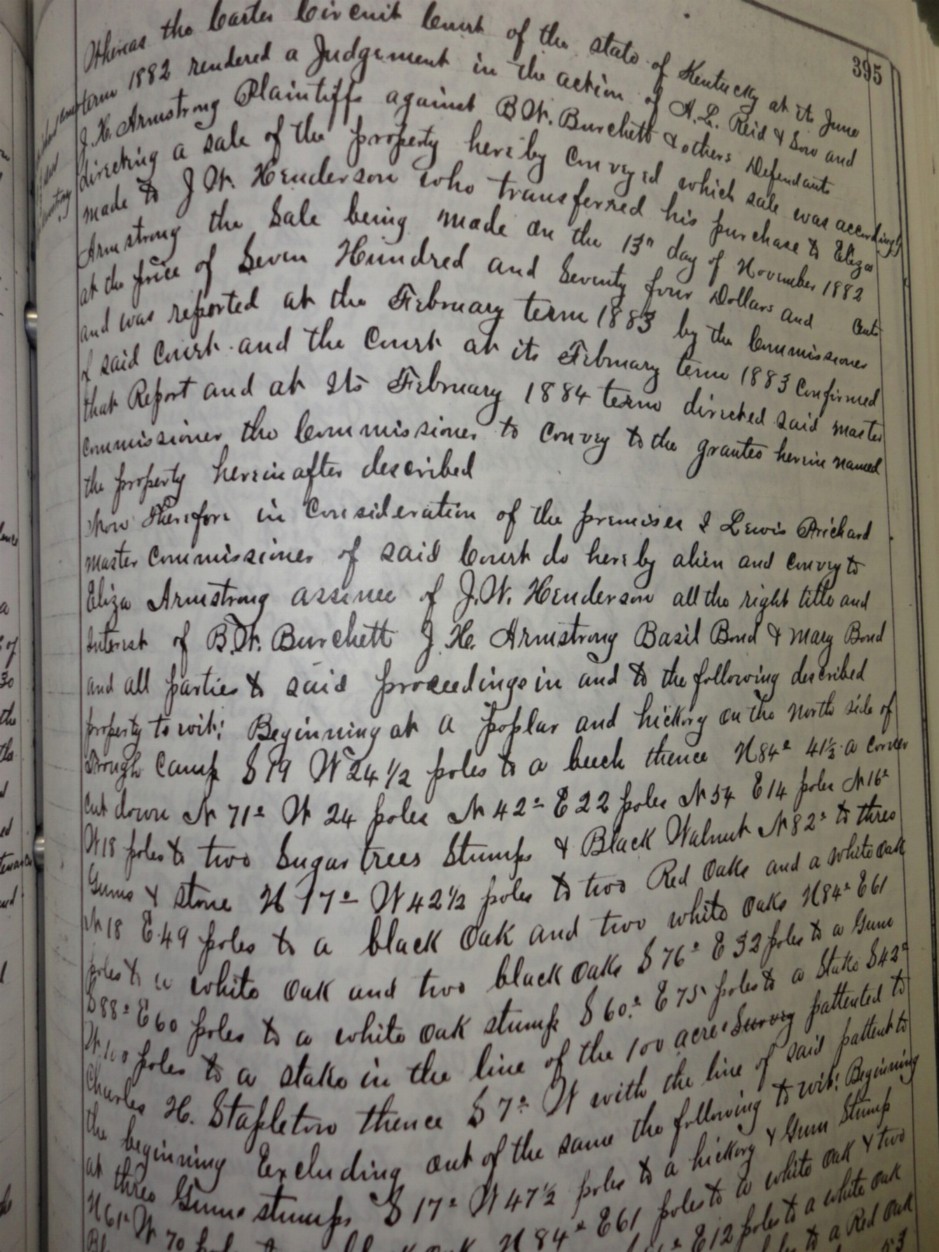 395
Whereas the Carter Circuit Court of the state of Kentucky at its June
term 1882 rendered a Judgement in the action of A.L. Reid & Son and
J.H. Armstrong Plaintiffs against B.W. Burchett & others Defendants
directing a sale of the property hereby conveyed which sale was accordingly
made to J W. Henderson who transferred his purchase to Eliza
Armstrong the Sale being made on the 13th day of November 1882
at the price of Seven Hundred and Seventy four Dollars and Cents
and was reported at the February term 1883 by the Commissioner
of said Court and the Court at its February term 1883 Confirmed
that Report and at Its February 1884 term directed said Master
Commissioner the Commissioner to Convey to the grantee herein named
the property hereinafter described
Now Therefore in Consideration of the premises I Lewis Prichard
Master Commissioner of said Court do hereby alien and convey to
Eliza Armstrong assinee of J.W. Henderson all the right title and
Interest of B.W. Burchett J.H. Armstrong Basil Bond & Mary Bond
and all parties to said proceedings in and to the following described
property to wit: Beginning at a poplar and hickory on the North side of
Trough Camp S 19 W 24 1/2 poles to a beech thence N 84° 41 1/2 a corner
cut down N 71° W 24 poles N 42° E 22 poles N 54 E 14 poles N 16°
W 18 poles to two Sugar trees Stumps & Black Walnut N 82° to three
Gums & stone N 17° W 42 1/2 poles to two Red Oaks and a white oak
N 18 E 49 poles to a black Oak and two white oaks N 84° E 61
poles to a white Oak and two black oaks S 76° E 32 poles to a Gum
S 88° E 60 poles to a white oak stump S 60° E 75 poles to a Stake S 42°
W 100 poles to a stake in the line of the 100 acre Survey pattented to
Charles H. Stapleton thence S 7° W with the line of said pattent to
the beginning Excluding out of the same the following to wit: Beginning
at three Gums stumps S 17° W 47 1/2 poles to a hickory & Gum Stump
N 61° W 70 N 84° E 61 poles to a white oak & two
E 12 poles to a white oak
to a Red Oak